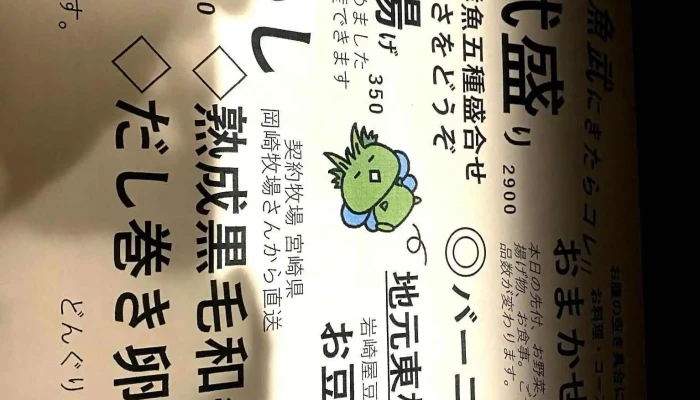 お腹の空き具合に
お料理・コース
魚武にきたらコレ!!
おまかせ
本日の先付、お野菜、
揚げ物、お食事。ご
品数が変わります。
盛り 2900
魚五種盛合せ
さをどうぞ
◎バーニ
揚げ 350
りました
できます
地元東
岩崎屋豆
お豆
し
契約牧場 宮崎県
岡崎牧場さんから直送
◇熟成黒毛和
◇だし巻き卵
す。
どんぐり